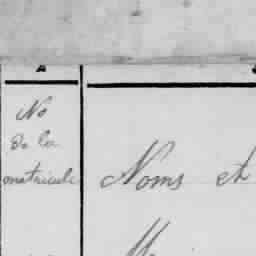 No
De la
matricule
Noms et